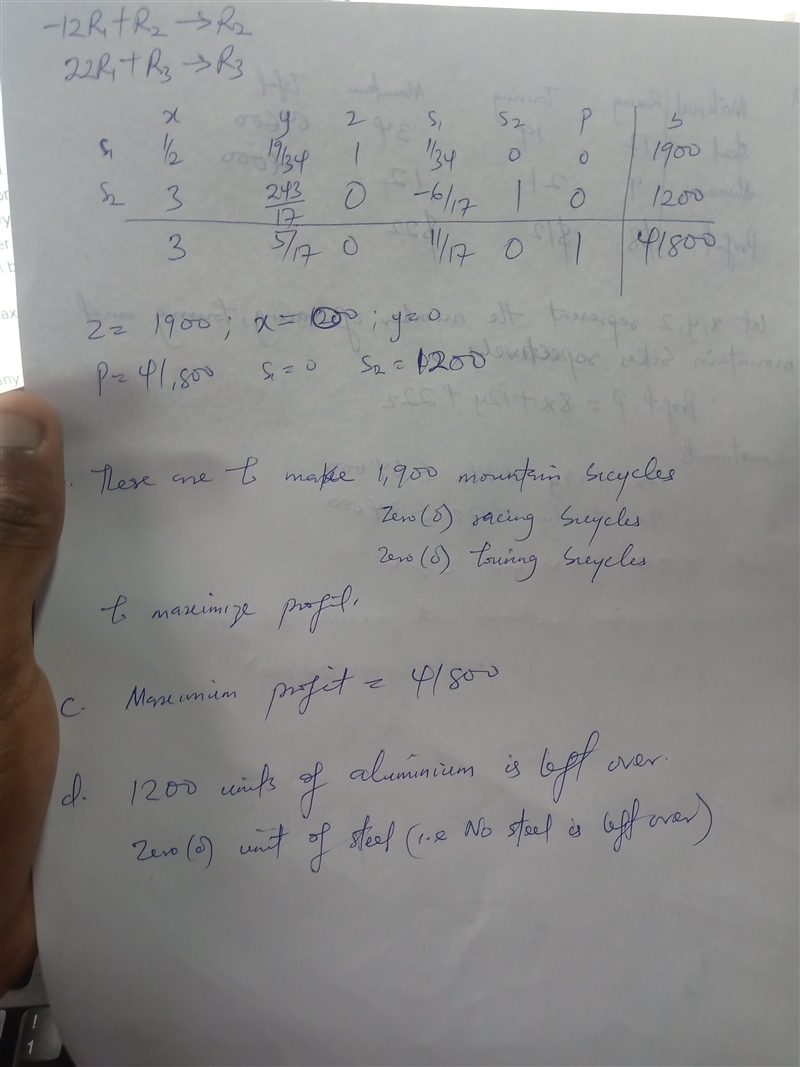 -12R₁+R₂ → R₂
22R₁+R₃ → R₃
x y z s₁ s₂ P s
s₁ 1/2 19/34 1 1/34 0 0 1900
s₂ 3 243/17 0 -6/17 1 0 1200
3 5/17 0 11/17 0 1 41800
z = 1900; x = 0; y = 0
P = 41,800 s₁ = 0 s₂ = 1200
There are to make 1,900 mountain bicycles
Zero(0) racing bicycles
Zero(0) touring bicycles
to maximize profit.
c. Maximum profit = 41800
d. 1200 units of aluminium is left over.
Zero(0) unit of steel (i.e No steel is left over)